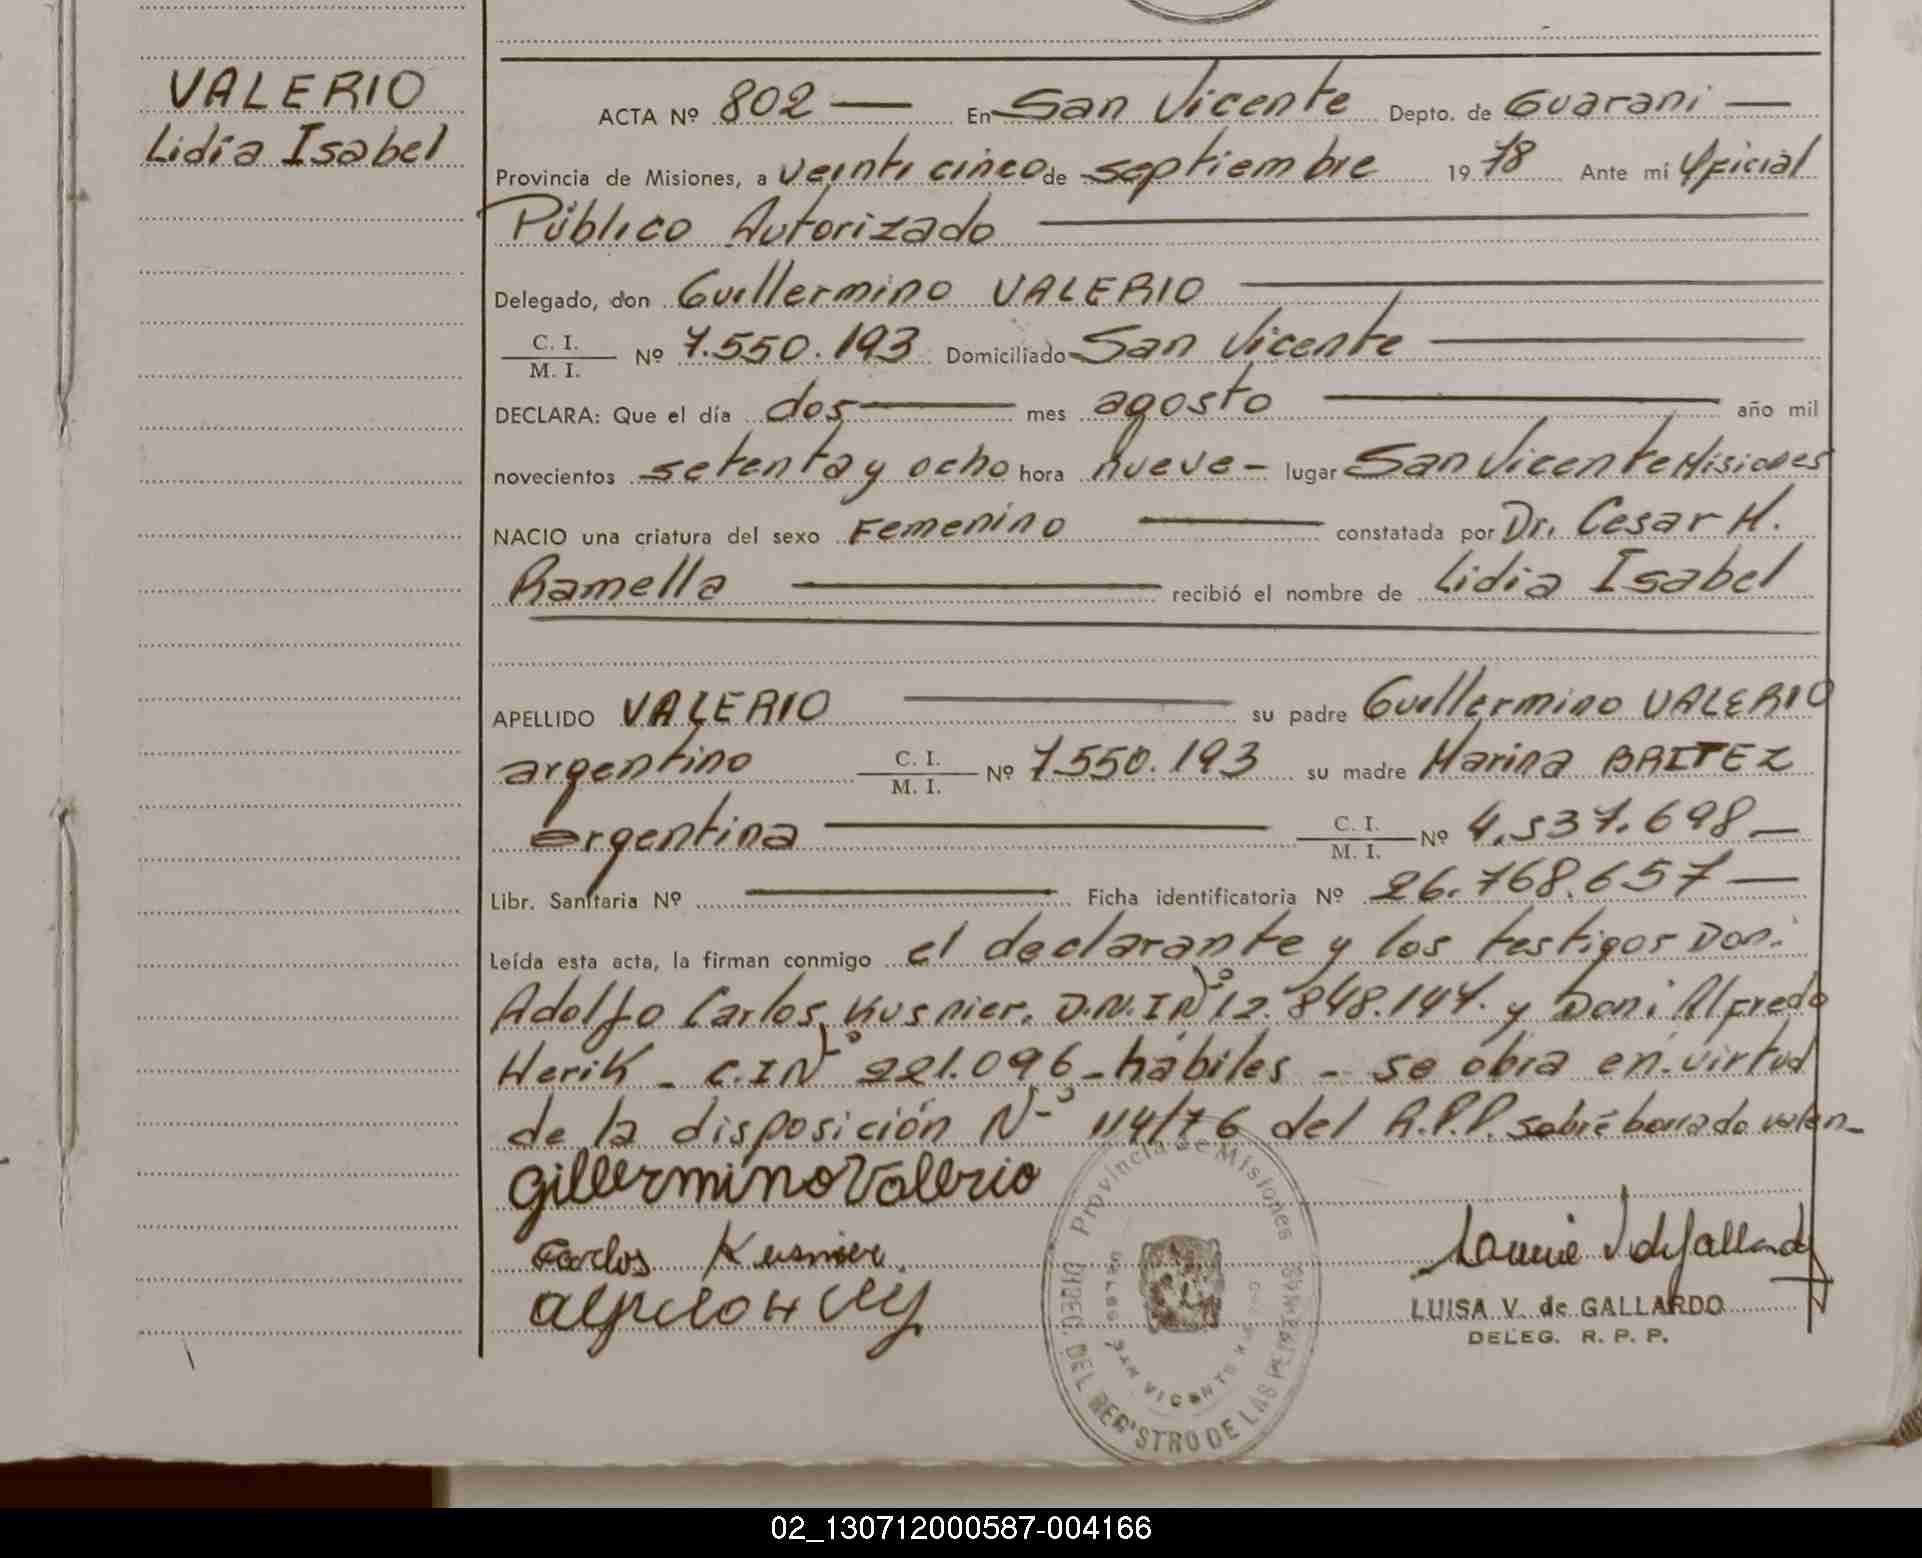 VALERIO
Lidia Isabel
ACTA Nº 802 — En San Vicente Depto. de Guarani —
Provincia de Misiones, a veinti cinco de septiembre 19 78 Ante mí Oficial
Público Autorizado —
Delegado, don Guillermino VALERIO —
C. I.
M. I. Nº 7.550.193 Domiciliado San Vicente —
DECLARA: Que el día dos — mes agosto — año mil
novecientos setenta y ocho hora nueve - lugar San Vicente Misiones
NACIO una criatura del sexo Femenino — constatada por Dr. Cesar H.
Ramella — recibió el nombre de Lidia Isabel
APELLIDO VALERIO — su padre Guillermino VALERIO
argentino C. I.
M. I. Nº 7.550.193 su madre Marina BAITEZ
argentina — C. I.
M. I. Nº 4.537.698 —
Libr. Sanitaria Nº — Ficha identificatoria Nº 26.768.657 —
Leída esta acta, la firman conmigo el declarante y los testigos Don:
Adolfo Carlos Kusnier. D.N.I Nº 12.848.144. y Don: Alfredo
Herik - C.I Nº 221.096 - hábiles - se obra en virtud
de la disposición Nº 114/76 del R.P.P. sobre borrado valen -
Gillermino Valerio
Carlos Kusnier.
LUISA V. de GALLARDO
DELEG. R. P. P.
Provincia de Misiones
DIREC. DEL REGISTRO DE LAS PERSONAS
SAN VICENTE
02_130712000587-004166